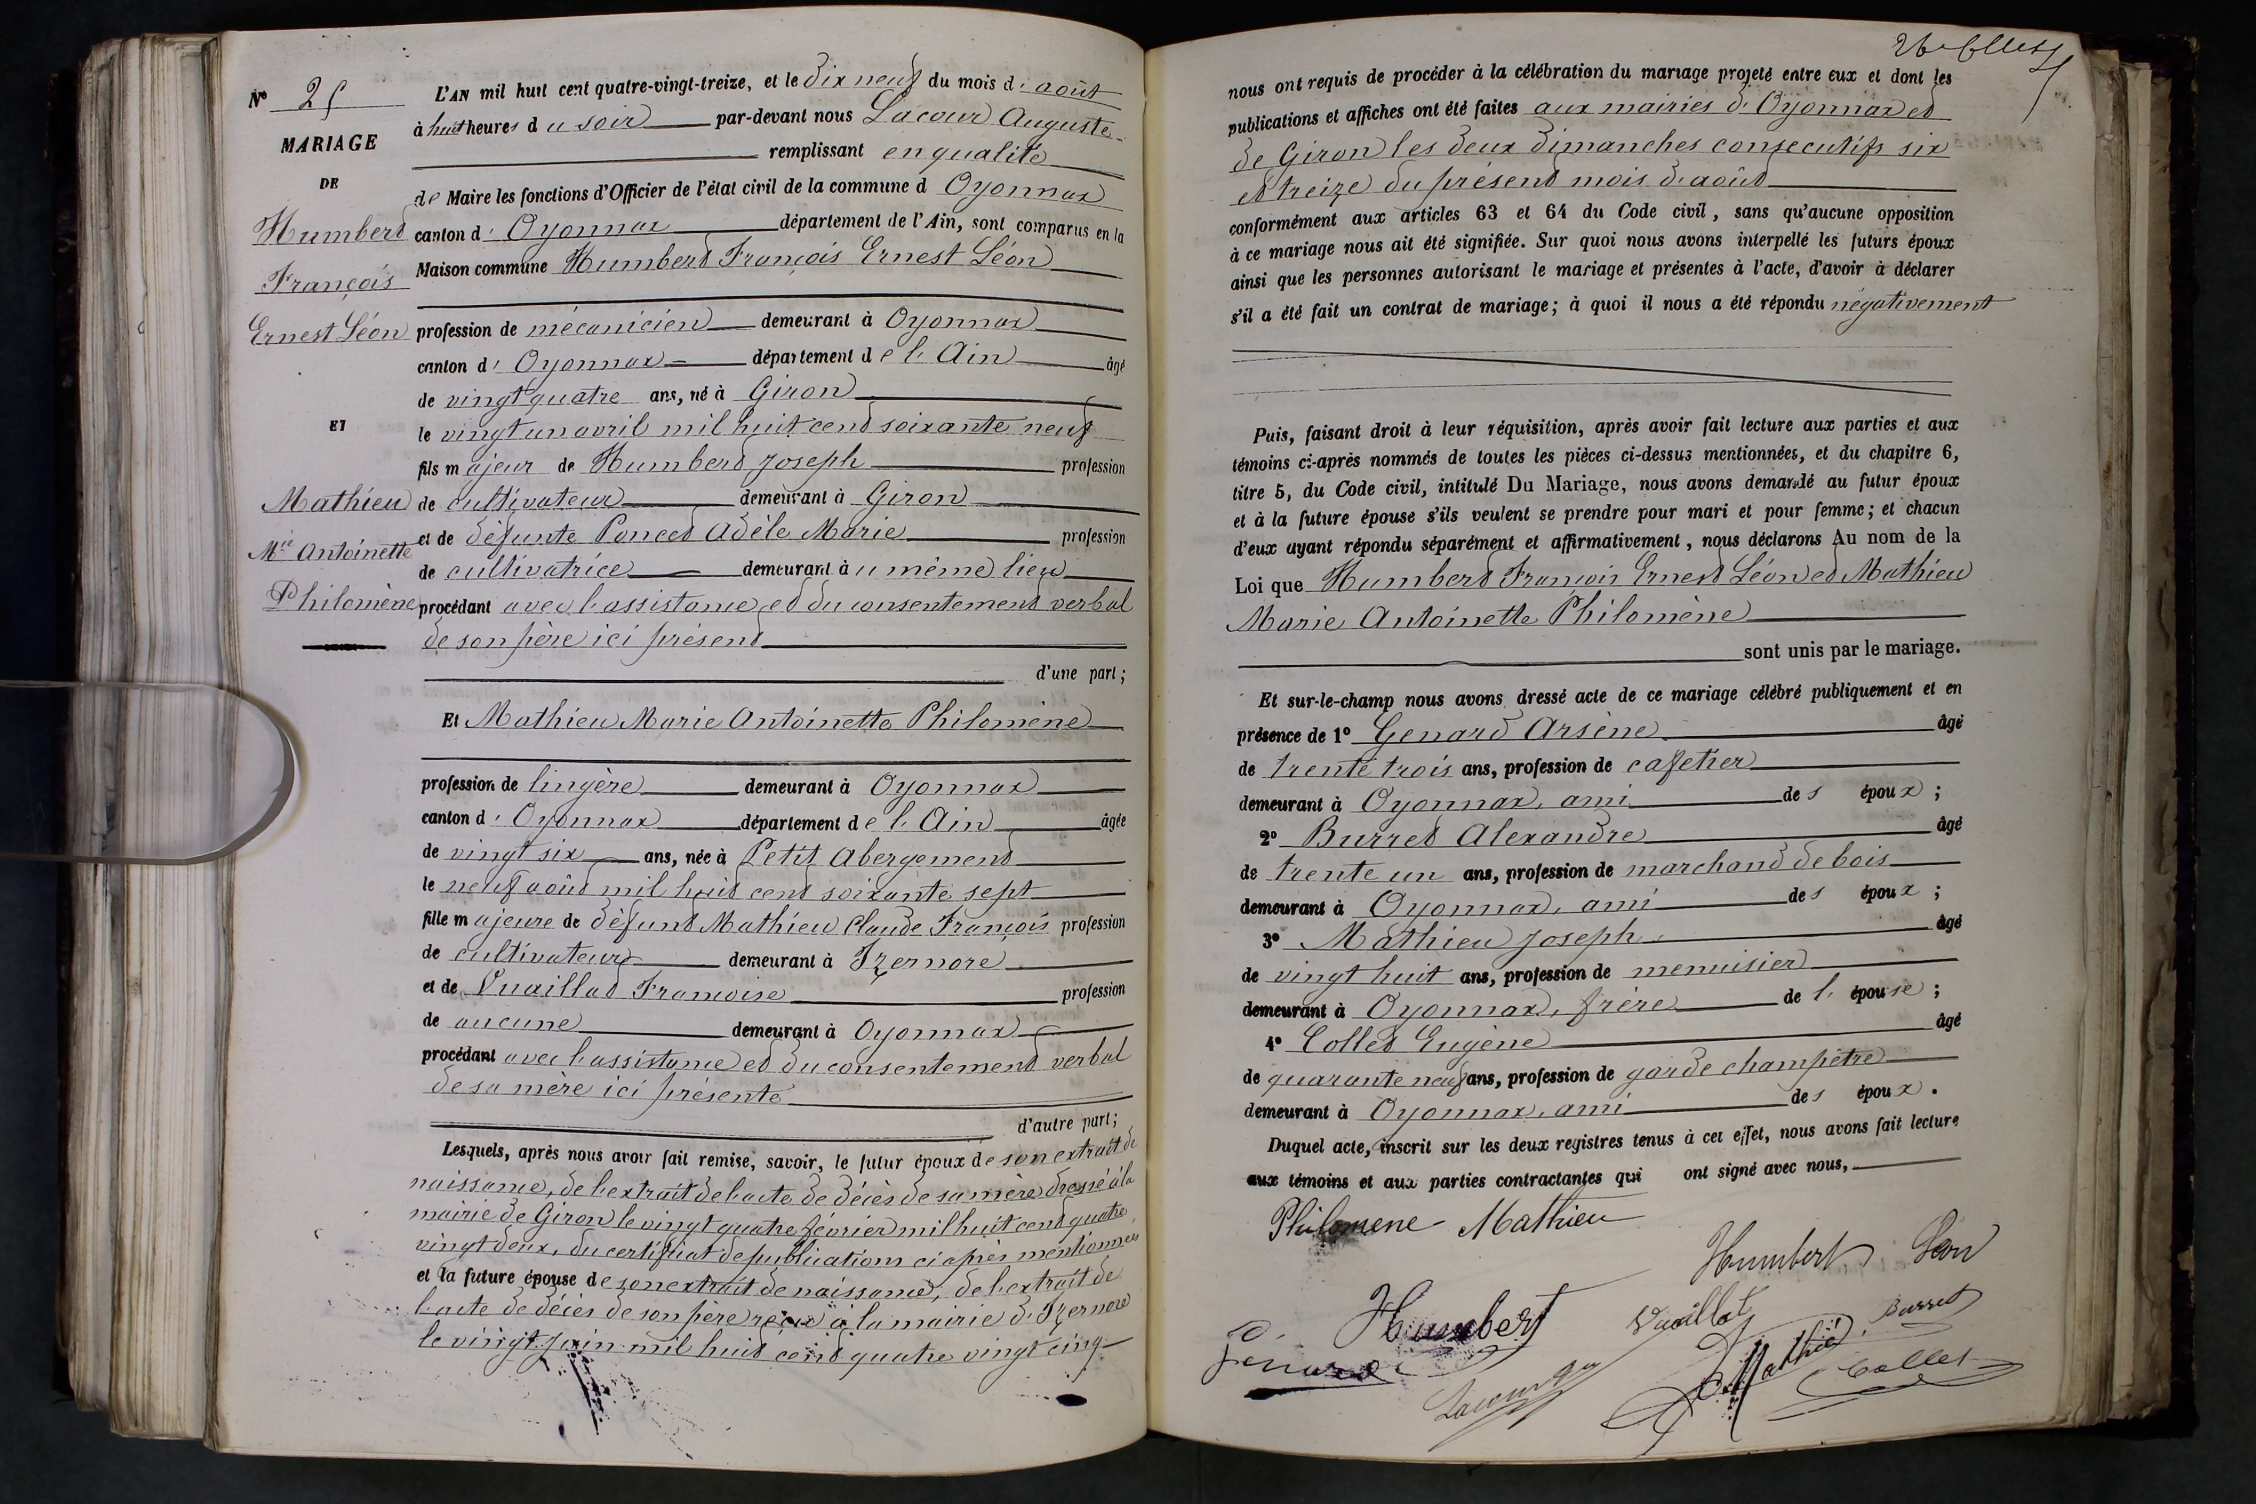 Nº 25
MARIAGE
DE
Humbert
François
Ernest Léon
ET
Mathieu
Mie Antoinette
Philomène
L'AN mil huit cent quatre-vingt-treize, et le dix neuf du mois d'août
à huit heures du soir par-devant nous Lacour Auguste
remplissant en qualité
de Maire les fonctions d'Officier de l'état civil de la commune d Oyonnax
canton d' Oyonnax département de l'Ain, sont comparus en la
Maison commune Humbert François Ernest Léon
profession de mécanicien demeurant à Oyonnax
canton d' Oyonnax département de l'Ain âgé
de vingt quatre ans, né à Giron
le vingt un avril mil huit cent soixante neuf
fils majeur de Humbert Joseph profession
de cultivateur demeurant à Giron
et de défunte Poncet Adèle Marie profession
de cultivatrice demeurant au même lieu
procédant avec l'assistance et du consentement verbal
de son père ici présent
d'une part;
Et Mathieu Marie Antoinette Philomène
profession de lingère demeurant à Oyonnax
canton d' Oyonnax département de l'Ain âgée
de vingt six ans, née à Petit Abergement
le neuf août mil huit cent soixante sept
fille majeure de défunt Mathieu Claude François profession
de cultivateur demeurant à Izernore
et de Vuaillat Françoise profession
de aucune demeurant à Oyonnax
procédant avec l'assistance et du consentement verbal
de sa mère ici présente
d'autre part;
Lesquels, après nous avoir fait remise, savoir, le futur époux de son extrait de
naissance, de l'extrait de l'acte de décès de sa mère dressé à la
mairie de Giron le vingt quatre février mil huit cent quatre
vingt deux, du certificat de publications ci après mentionnées
et la future épouse de son extrait de naissance, de l'extrait de
l'acte de décès de son père reçu à la mairie d'Izernore
le vingt juin mil huit cent quatre vingt cinq
nous ont requis de procéder à la célébration du mariage projeté entre eux et dont les
publications et affiches ont été faites aux mairies d'Oyonnax et
de Giron les deux dimanches consecutifs six
et treize du présent mois d'août
conformément aux articles 63 et 64 du Code civil, sans qu'aucune opposition
à ce mariage nous ait été signifiée. Sur quoi nous avons interpellé les futurs époux
ainsi que les personnes autorisant le mariage et présentes à l'acte, d'avoir à déclarer
s'il a été fait un contrat de mariage; à quoi il nous a été répondu négativement
Puis, faisant droit à leur réquisition, après avoir fait lecture aux parties et aux
témoins ci-après nommés de toutes les pièces ci-dessus mentionnées, et du chapitre 6,
titre 5, du Code civil, intitulé Du Mariage, nous avons demandé au futur époux
et à la future épouse s'ils veulent se prendre pour mari et pour femme; et chacun
d'eux ayant répondu séparément et affirmativement, nous déclarons Au nom de la
Loi que Humbert François Ernest Léon et Mathieu
Marie Antoinette Philomène
sont unis par le mariage.
Et sur-le-champ nous avons dressé acte de ce mariage célébré publiquement et en
présence de 1º Genard Arsène âgé
de trente trois ans, profession de cafetier
demeurant à Oyonnax, ami des époux;
2º Burret Alexandre âgé
de trente un ans, profession de marchand de bois
demeurant à Oyonnax, ami des époux;
3º Mathieu Joseph âgé
de vingt huit ans, profession de menuisier
demeurant à Oyonnax, frère de l'épouse;
4º Collet Eugène âgé
de quarante neuf ans, profession de garde champêtre
demeurant à Oyonnax, ami des époux.
Duquel acte, inscrit sur les deux registres tenus à cet effet, nous avons fait lecture
aux témoins et aux parties contractantes qui ont signé avec nous,
Philomene Mathieu
Humbert Léon
Humbert Vuaillat Burret
Genard Mathieu Collet